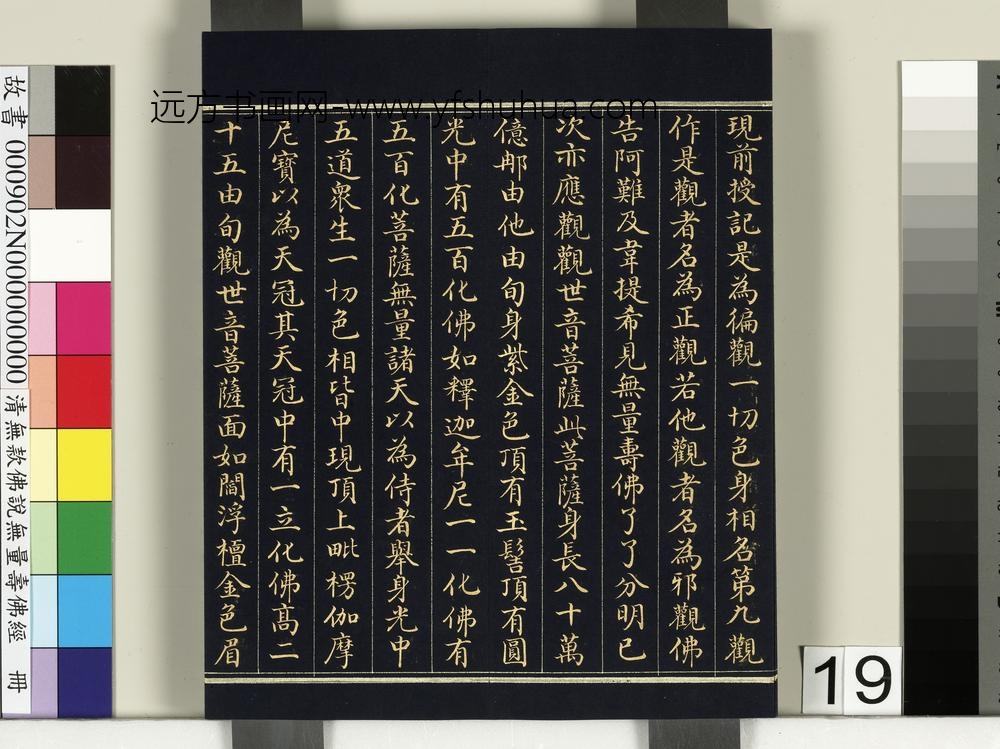 現前授記是為徧觀一切色身相名第九觀
作是觀者名為正觀若他觀者名為邪觀佛
告阿難及韋提希見無量壽佛了了分明已
次亦應觀觀世音菩薩此菩薩身長八十萬
億那由他由旬身紫金色頂有玉髻頂有圓
光中有五百化佛如釋迦牟尼一一化佛有
五百化菩薩無量諸天以為侍者舉身光中
五道衆生一切色相皆中現頂上毗楞伽摩
尼寶以為天冠其天冠中有一立化佛高二
十五由旬觀世音菩薩面如閻浮檀金色眉
远方书画网-www.yfshuhua.com
故書 000902N000000000 清無款佛說無量壽佛經 冊
19